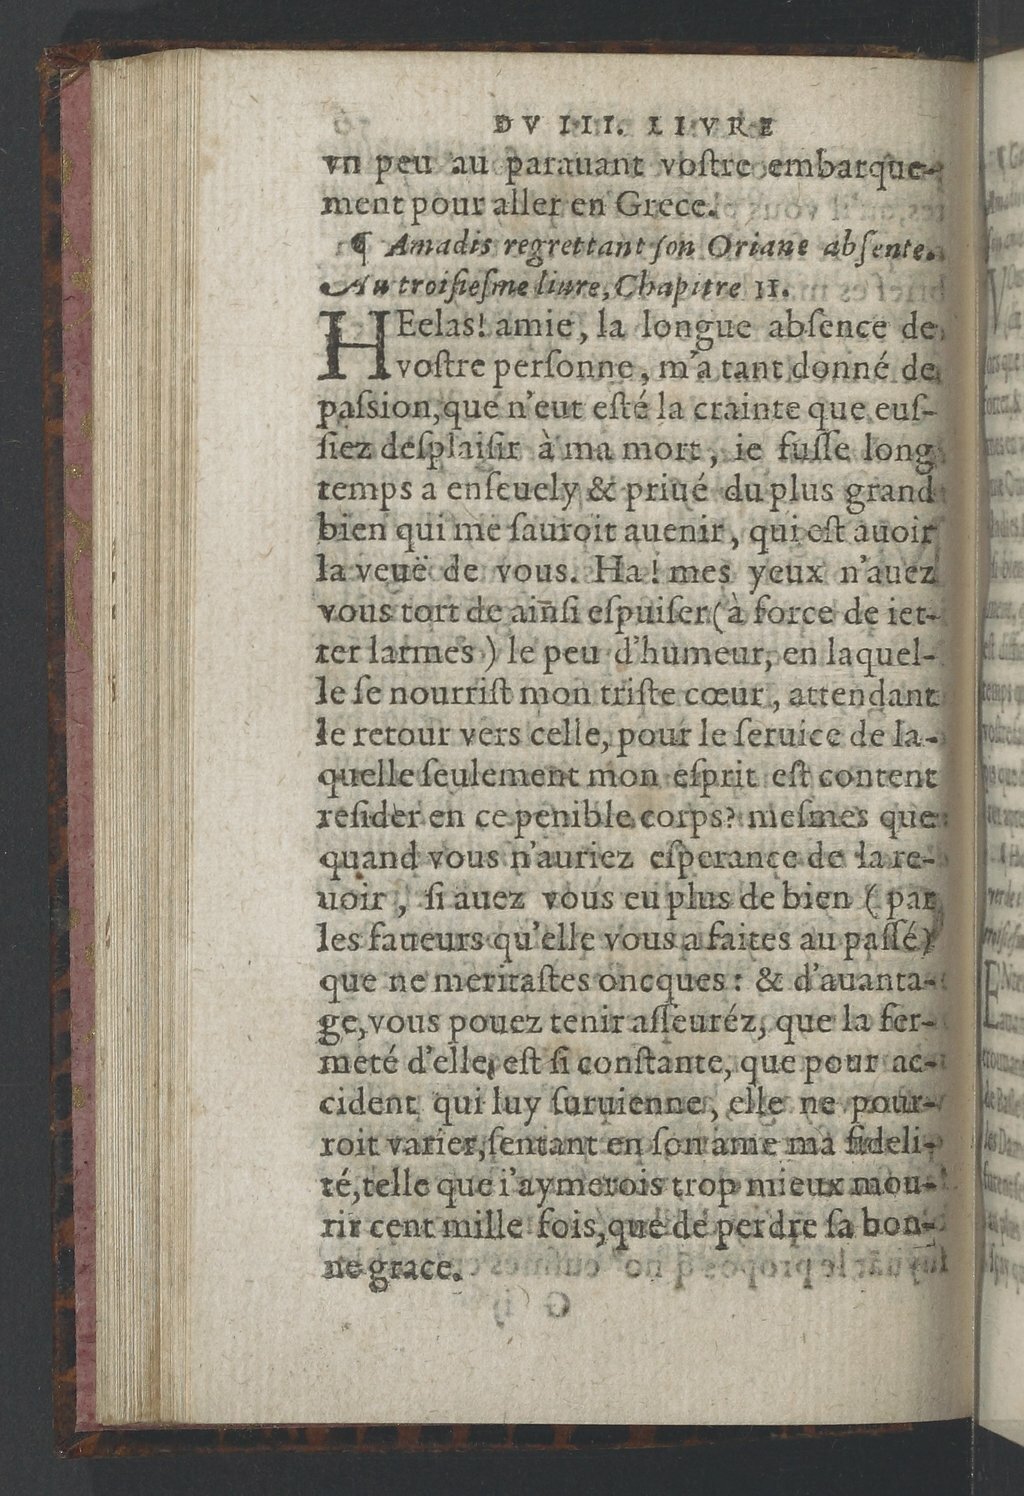 DV III. LIVRE
vn peu au parauant voſtre embarque-
ment pour aller en Grece.
¶ Amadis regrettant ſon Oriane abſente.
Au troiſieſme liure, Chapitre II.
HEelas! amie, la longue abſence de
voſtre perſonne, m'a tant donné de
paſsion, que n'eut eſté la crainte que euſ-
ſiez deſplaiſir à ma mort, ie fuſſe long
temps a enſeuely & priué du plus grand
bien qui me ſauroit auenir, qui eſt auoir
la veuë de vous. Ha! mes yeux n'auez
vous tort de ainſi eſpuiſer (à force de iet-
ter larmes) le peu d'humeur, en laquel-
le ſe nourriſt mon triſte cœur, attendant
le retour vers celle, pour le ſeruice de la-
quelle ſeulement mon eſprit eſt content
reſider en ce penible corps? meſmes que
quand vous n'auriez eſperance de la re-
uoir, ſi auez vous eu plus de bien (par
les faueurs qu'elle vous a faites au paſſé)
que ne meritaſtes oncques: & d'auanta-
ge, vous pouez tenir aſſeuréz, que la fer-
meté d'elle, eſt ſi conſtante, que pour ac-
cident qui luy ſuruienne, elle ne pour-
roit varier, ſentant en ſon ame ma fideli-
té, telle que i'aymerois trop mieux mou-
rir cent mille fois, que de perdre ſa bon-
ne grace.